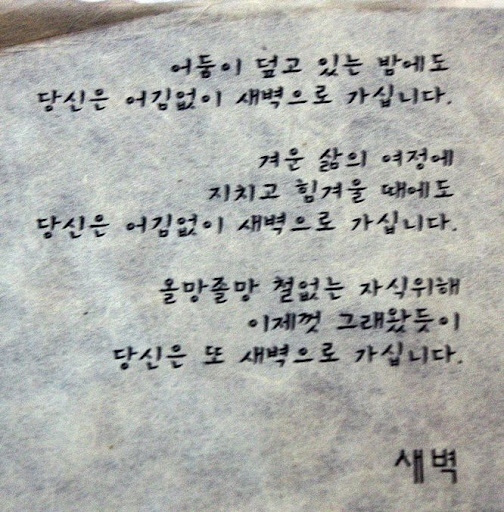 어둠이 덮고 있는 밤에도
당신은 어김없이 새벽으로 가십니다.
겨운 삶의 여정에
지치고 힘겨울 때에도
당신은 어김없이 새벽으로 가십니다.
올망졸망 철없는 자식위해
이제껏 그래왔듯이
당신은 또 새벽으로 가십니다.
새벽